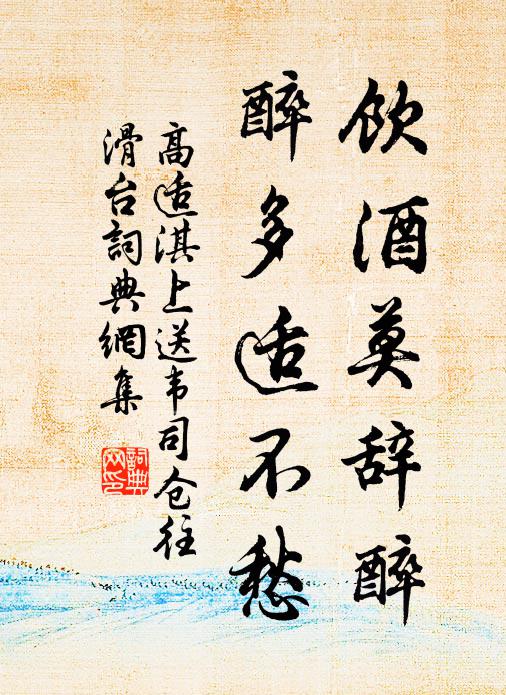 饮酒莫辞醉
醉多适不愁
高适淇上送韦司仓往
滑台詞典網集
詞典
网印